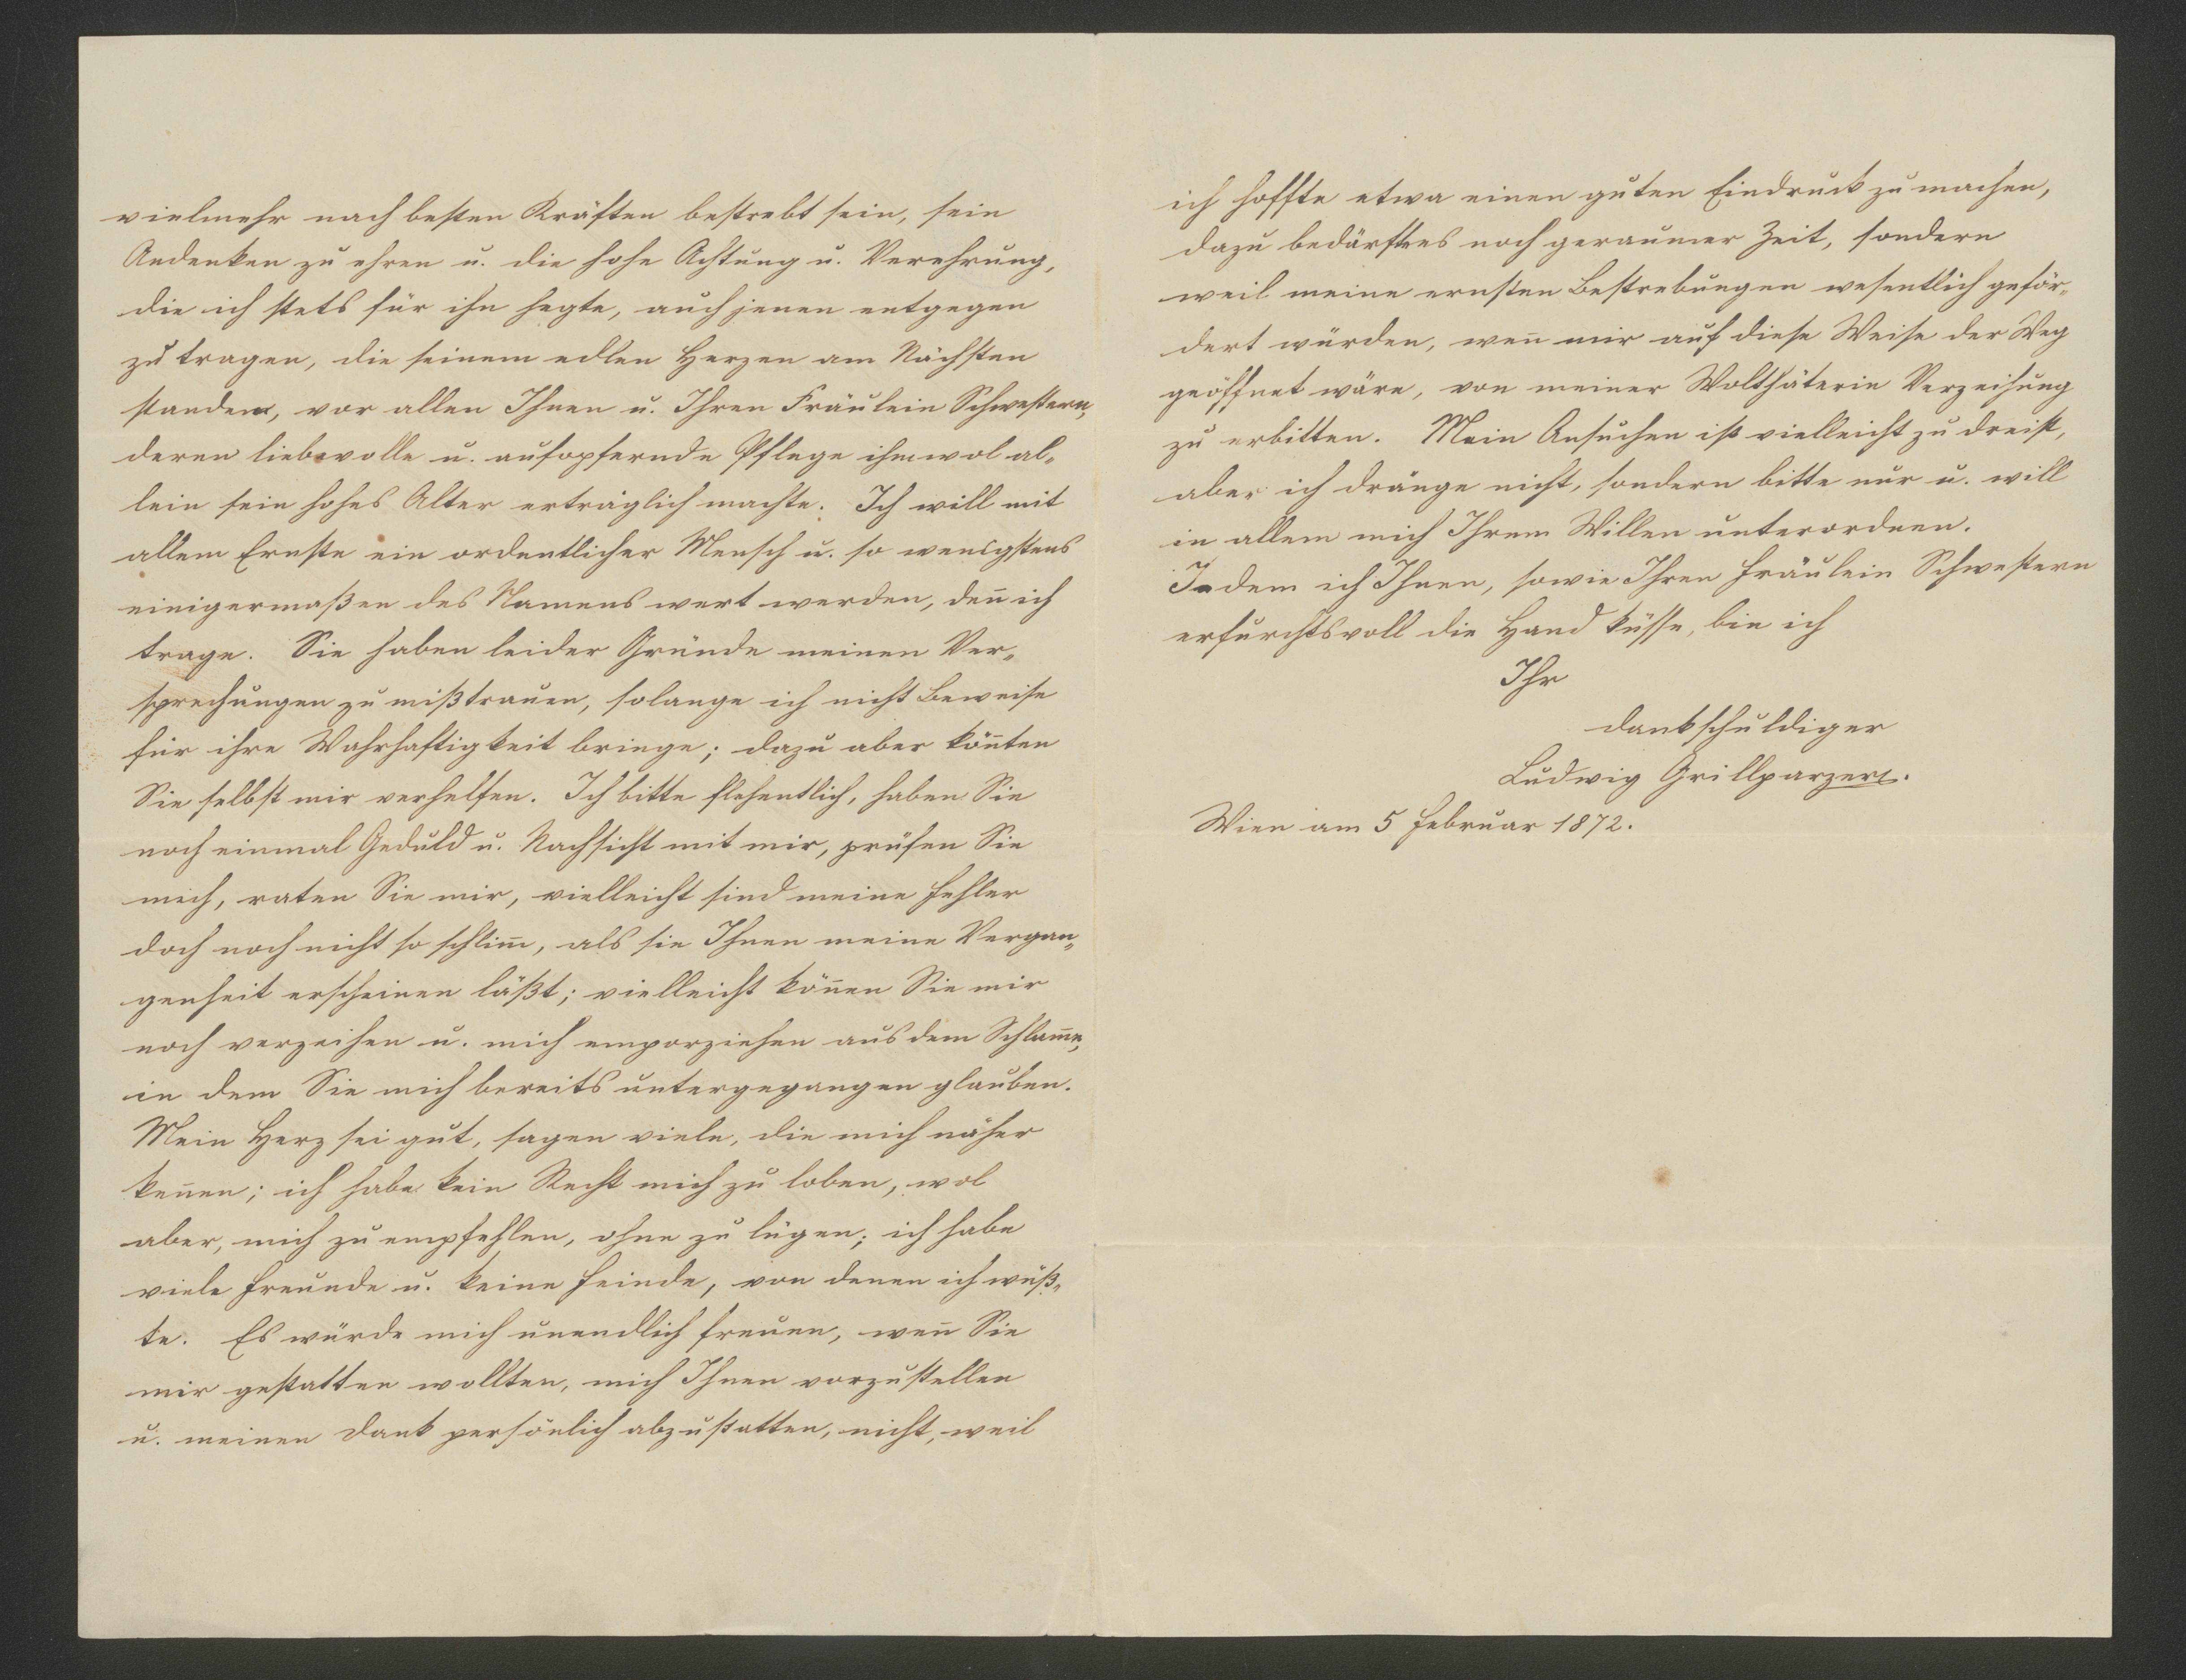 vielmehr nach besten Kräften bestrebt sein, sein
Andenken zu ehren u. die hohe Achtung u. Verehrung,
die ich stets für ihn hegte, auch jenen entgegen
zu tragen, die seinem edlen Herzen am Nächsten
standen, vor allen Ihnen u. Ihren Fräulein Schwestern,
deren liebevolle u. aufopfernde Pflege ihm wol al„
lein sein hohes Alter erträglich machte. Ich will mit
allem Ernste ein ordentlicher Mensch u. so wenigstens
einigermaßen des Namens wert werden, den̄ ich
trage. Sie haben leider Gründe meinen Ver„
sprechungen zu mißtrauen, solange ich nicht Beweise
für ihre Wahrhaftigkeit bringe; dazu aber kön̄ten
Sie selbst mir verhelfen. Ich bitte flehentlich, haben Sie
noch einmal Geduld u. Nachsicht mit mir, prüfen Sie
mich, raten Sie mir, vielleicht sind meine Fehler
doch noch nicht so schlim̄, als sie Ihnen meine Vergan„
genheit erscheinen läßt; vielleicht kön̄en Sie mir
noch verzeihen u. mich emporziehen aus dem Schlam̄e,
in dem Sie mich bereits untergegangen glauben.
Mein Herz sei gut, sagen viele, die mich näher
ken̄en; ich habe kein Recht mich zu loben, wol
aber, mich zu empfehlen, ohne zu lügen; ich habe
viele Freunde u. keine Feinde, von denen ich wüß„
te. Es würde mich unendlich freuen, wen̄ Sie
mir gestatten wollten, mich Ihnen vorzustellen
u. meinen Dank persönlich abzustatten, nicht, weil
ich hoffte etwa einen guten Eindruck zu machen,
dazu bedürfte es noch geraumer Zeit, sondern
weil meine ernsten Bestrebungen wesentlich geför„
dert würden, wen̄ mir auf diese Weise der Weg
geöffnet wäre, von meiner Wolthäterin Verzeihung
zu erbitten. Mein Ansuchen ist vielleicht zu dreist,
aber ich dränge nicht, sondern bitte nur u. will
in allem mich Ihrem Willen unterordnen.
Indem ich Ihnen, sowie Ihren Fräulein Schwestern
erfurchtsvoll die Hand küsse, bin ich
Ihr
dankschuldiger
Ludwig Grillparzer.
Wien am 5 Februar 1872.